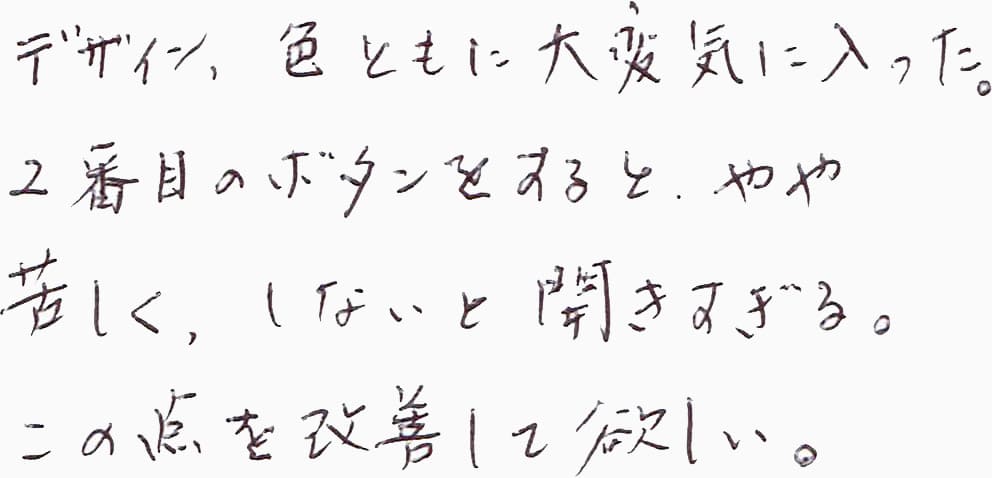 デザイン、色ともに大変気に入った。
2番目のボタンをすると、やや
苦しく、しないと開きすぎる。
この点を改善して欲しい。